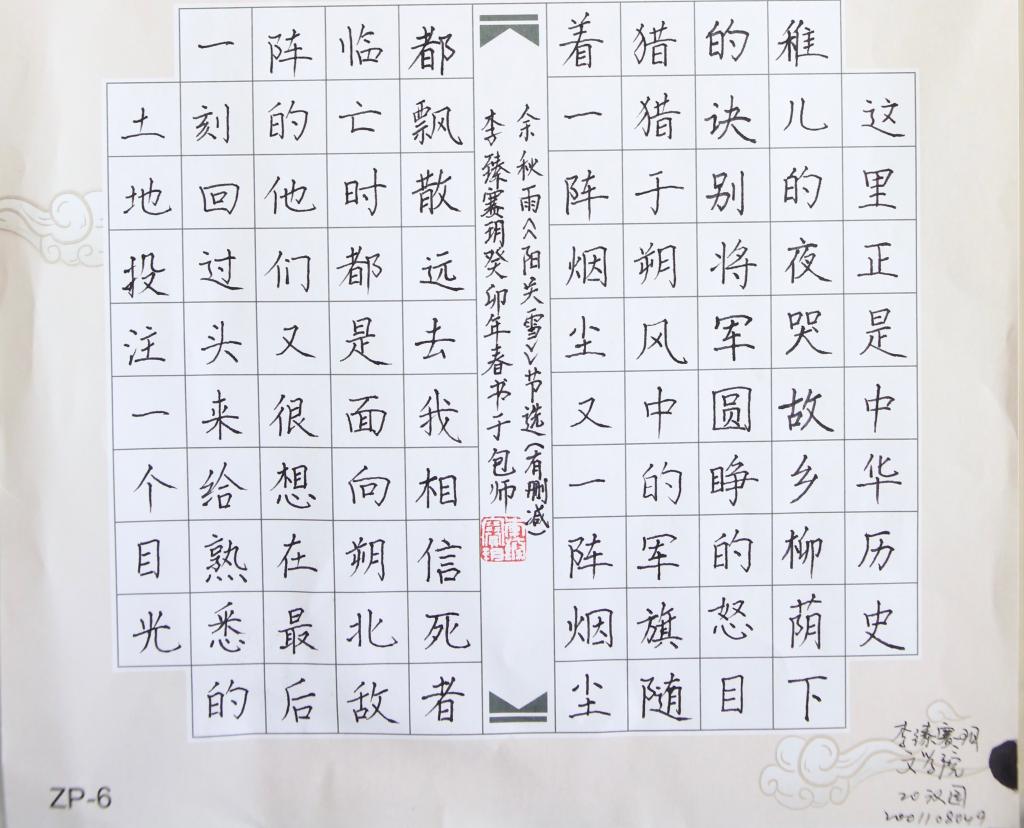 这里正是中华历史
稚儿的夜哭故乡柳荫下
的诀别将军圆睁的怒目
猎猎于朔风中的军旗随
着一阵烟尘又一阵烟尘
余秋雨《阳关雪》节选(有删减)
李臻赛玥癸卯年春书于包师
都飘散远去我相信死者
临亡时都是面向朔北敌
阵的他们又很想在最后
一刻回过头来给熟悉的
土地投注一个目光
ZP-6
李臻赛玥
文学院
20汉国
2001108049